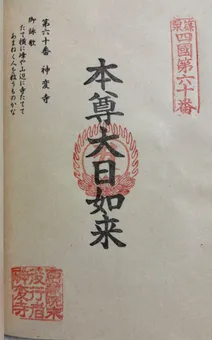 四國第六十番
本尊大日如来
第六十番 神変寺
御詠歌
たて横に峰や山辺に寺たてて
あまねく人を救うものかな